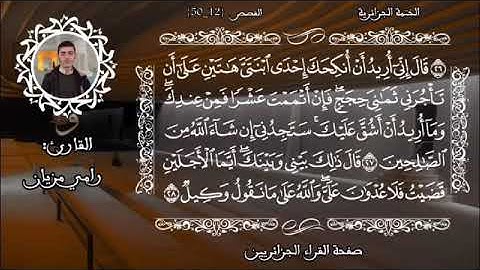 الختمة الجزائرية
القصص {12_50}
قَالَ إِنِّي أُرِيدُ أَنْ أُنكِحَكَ إِحْدَى ابْنَتَيَّ هَاتَيْنِ عَلَىٰ أَن
تَأْجُرَنِي ثَمَانِيَ حِجَجٍ فَإِنْ أَتْمَمْتَ عَشْرًا فَمِنْ عِندِكَ
وَمَا أُرِيدُ أَنْ أَشُقَّ عَلَيْكَ سَتَجِدُنِي إِن شَاءَ اللَّهُ مِنَ
الصَّالِحِينَ ٢٧ قَالَ ذَٰلِكَ بَيْنِي وَبَيْنَكَ أَيَّمَا الْأَجَلَيْنِ
قَضَيْتُ فَلَا عُدْوَانَ عَلَيَّ وَاللَّهُ عَلَىٰ مَا نَقُولُ وَكِيلٌ ٢٨
القارئ:
رامي مزيان
صفحة القراء الجزائريين